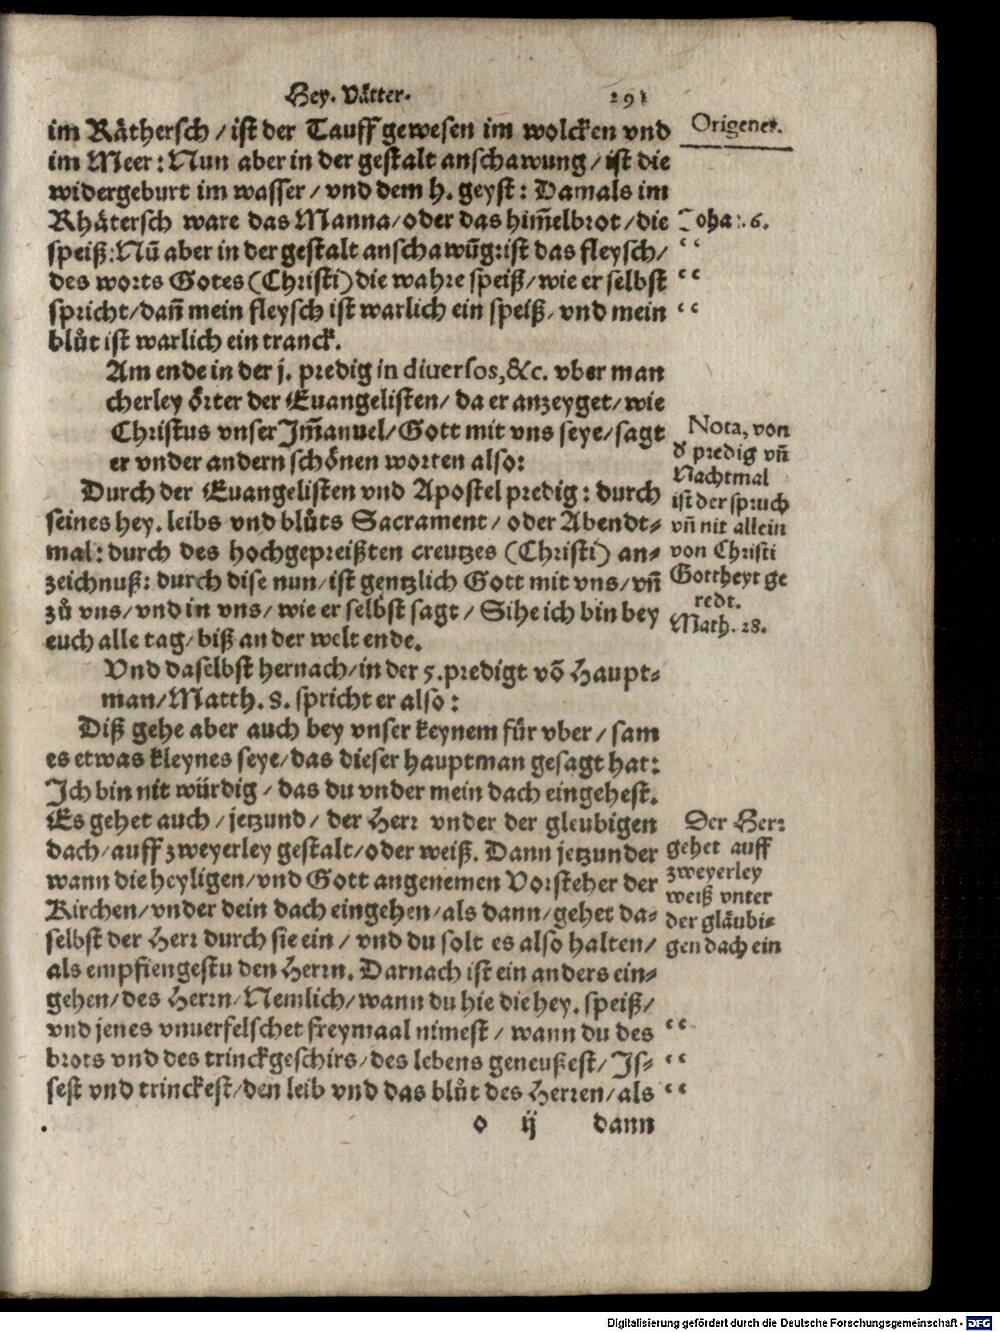 Hey. Vätter. 291
im Räthersch / ist der Tauff gewesen im wolcken vnd
Origenes.
im Meer: Nun aber in der gestalt anschawung / ist die
widergeburt im wasser / vnd dem h. geyst: Damals im
Rhätersch ware das Manna / oder das him̃elbrot / die
Joha. 6.
speiß: Nũ aber in der gestalt anschawũg: ist das fleysch /
des worts Gotes (Christi) die wahre speiß / wie er selbst
spricht / dañ mein fleysch ist warlich ein speiß / vnd mein
blůt ist warlich ein tranck.
Am ende in der j. predig in diuersos, &c. vber man
cherley örter der Euangelisten / da er anzeyget / wie
Christus vnser Im̃anuel / Gott mit vns seye / sagt
er vnder andern schönen worten also:
Nota, von
d̕ predig vñ
Nachtmal
ist der spruch
vñ nit allein
von Christi
Gottheyt ge
redt.
Math. 28.
Durch der Euangelisten vnd Apostel predig: durch
seines hey. leibs vnd blůts Sacrament / oder Abendt⸗
mal: durch des hochgepreißten creutzes (Christi) an⸗
zeichnuß: durch dise nun / ist gentzlich Gott mit vns / vñ
zů vns / vnd in vns / wie er selbst sagt / Sihe ich bin bey
euch alle tag / biß an der welt ende.
Vnd daselbst hernach / in der 5. predigt võ Haupt⸗
man / Matth. 8. spricht er also:
Diß gehe aber auch bey vnser keynem für vber / sam
es etwas kleynes seye / das dieser hauptman gesagt hat:
Ich bin nit würdig / das du vnder mein dach eingehest.
Es gehet auch / jetzund / der Herr vnder der gleubigen
dach / auff zweyerley gestalt / oder weiß. Dann jetzunder
wann die heyligen / vnd Gott angenemen Vorsteher der
Kirchen / vnder dein dach eingehen / als dann / gehet da⸗
selbst der Herr durch sie ein / vnd du solt es also halten /
als empfiengestu den Herrn. Darnach ist ein anders ein⸗
gehen / des Herrn / Nemlich / wann du hie die hey. speiß /
vnd jenes vnuerfelschet freymaal nimest / wann du des
brots vnd des trinckgeschirs / des lebens geneußest / Is⸗
sest vnd trinckest / den leib vnd das blůt des Herren / als
Der Herr
gehet auff
zweyerley
weiß vnter
der gläubi⸗
gen dach ein
o ij dann
Digitalisierung gefördert durch die Deutsche Forschungsgemeinschaft - DFG